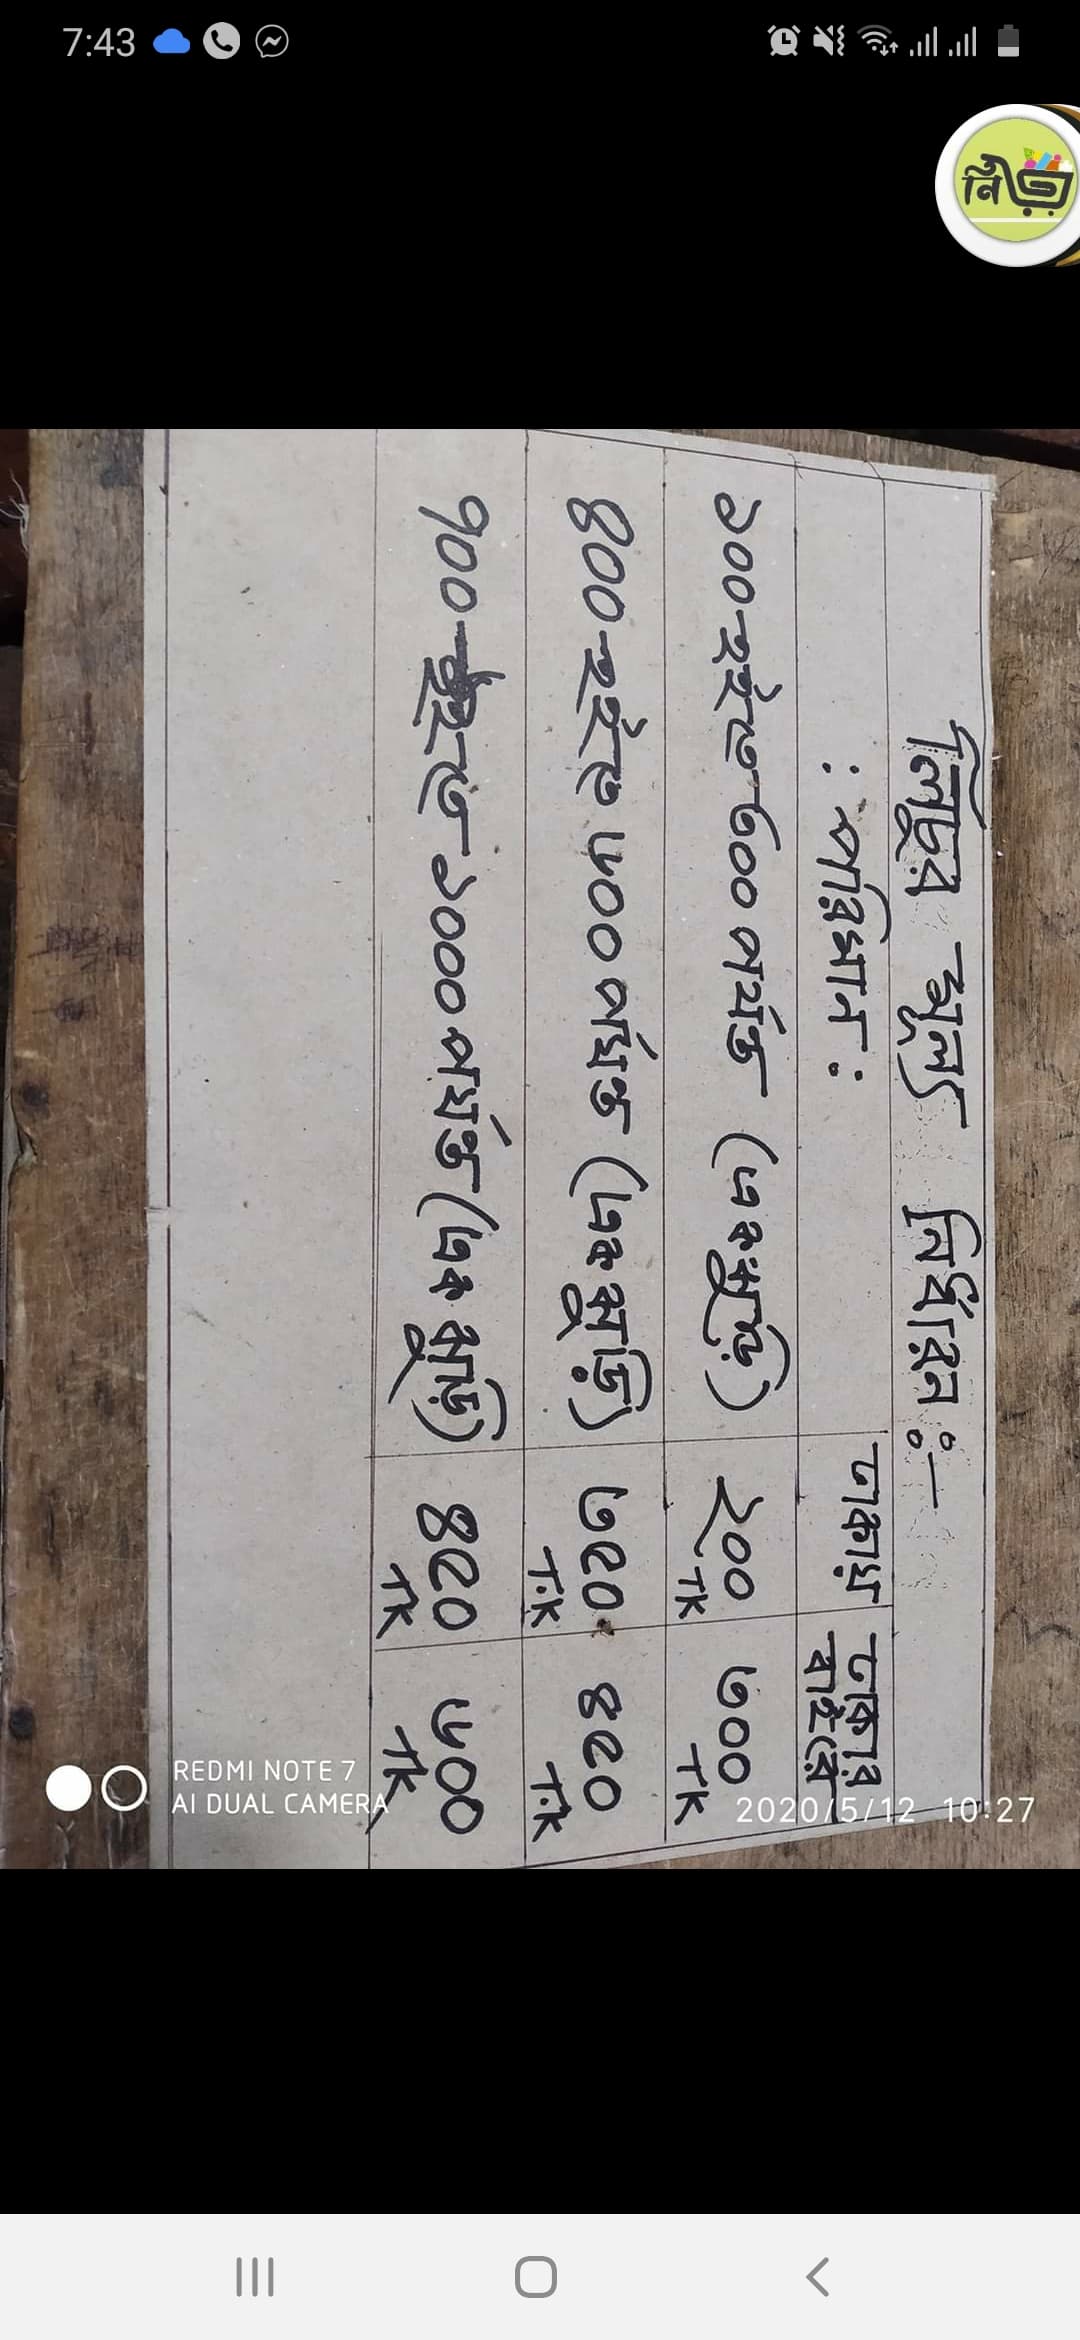 7:43
নিত্য
লিচুর মূল্য নির্ধারন ঃ—
: পরিমান :
ঢাকায়
ঢাকার বাইরে
১০০ হইতে ৩০০ পর্যন্ত (এক ঝুড়ি)
২০০ TK
৩০০ TK
৪০০ হইতে ৬০০ পর্যন্ত (এক ঝুড়ি)
৩৫০ T.K
৪৫০ T.K
৭০০ হইতে ১০০০ পর্যন্ত (এক ঝুড়ি)
৪৫০ TK
৬০০ TK
REDMI NOTE 7
AI DUAL CAMERA
2020/5/12 10:27